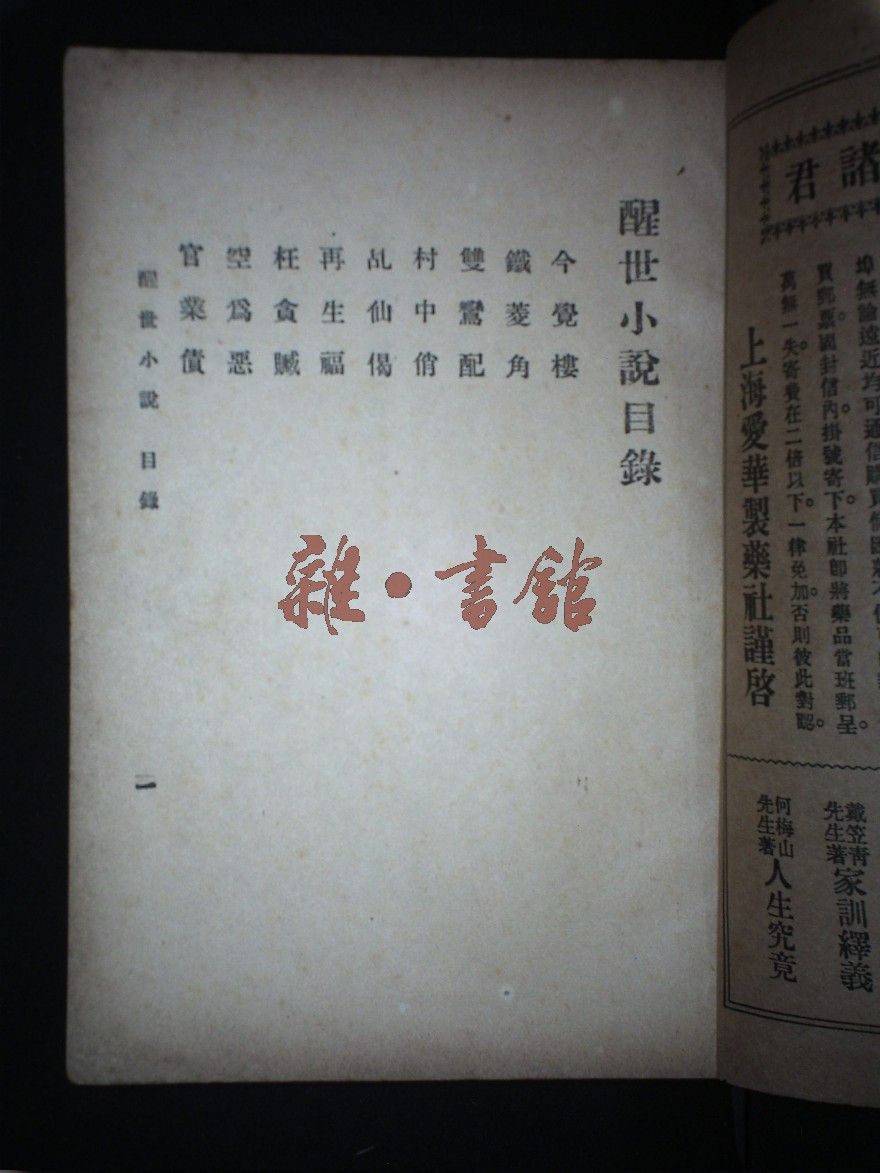 諸君
埠無論遠近均可通信購買
買郵票固封信內掛號寄下。本社卽將藥品當班郵呈。
萬無一失。寄費在二倍以下。一律免加。否則彼此對認。
上海愛華製藥社謹啓
戴笠青先生著 家訓繹義
何梅山先生著 人生究竟
醒世小說目錄
今覺樓
鐵菱角
雙鸞配
村中俏
乩仙偈
再生福
枉貪贓
空爲惡
官業債
醒世小說 目錄
一
雜·書館